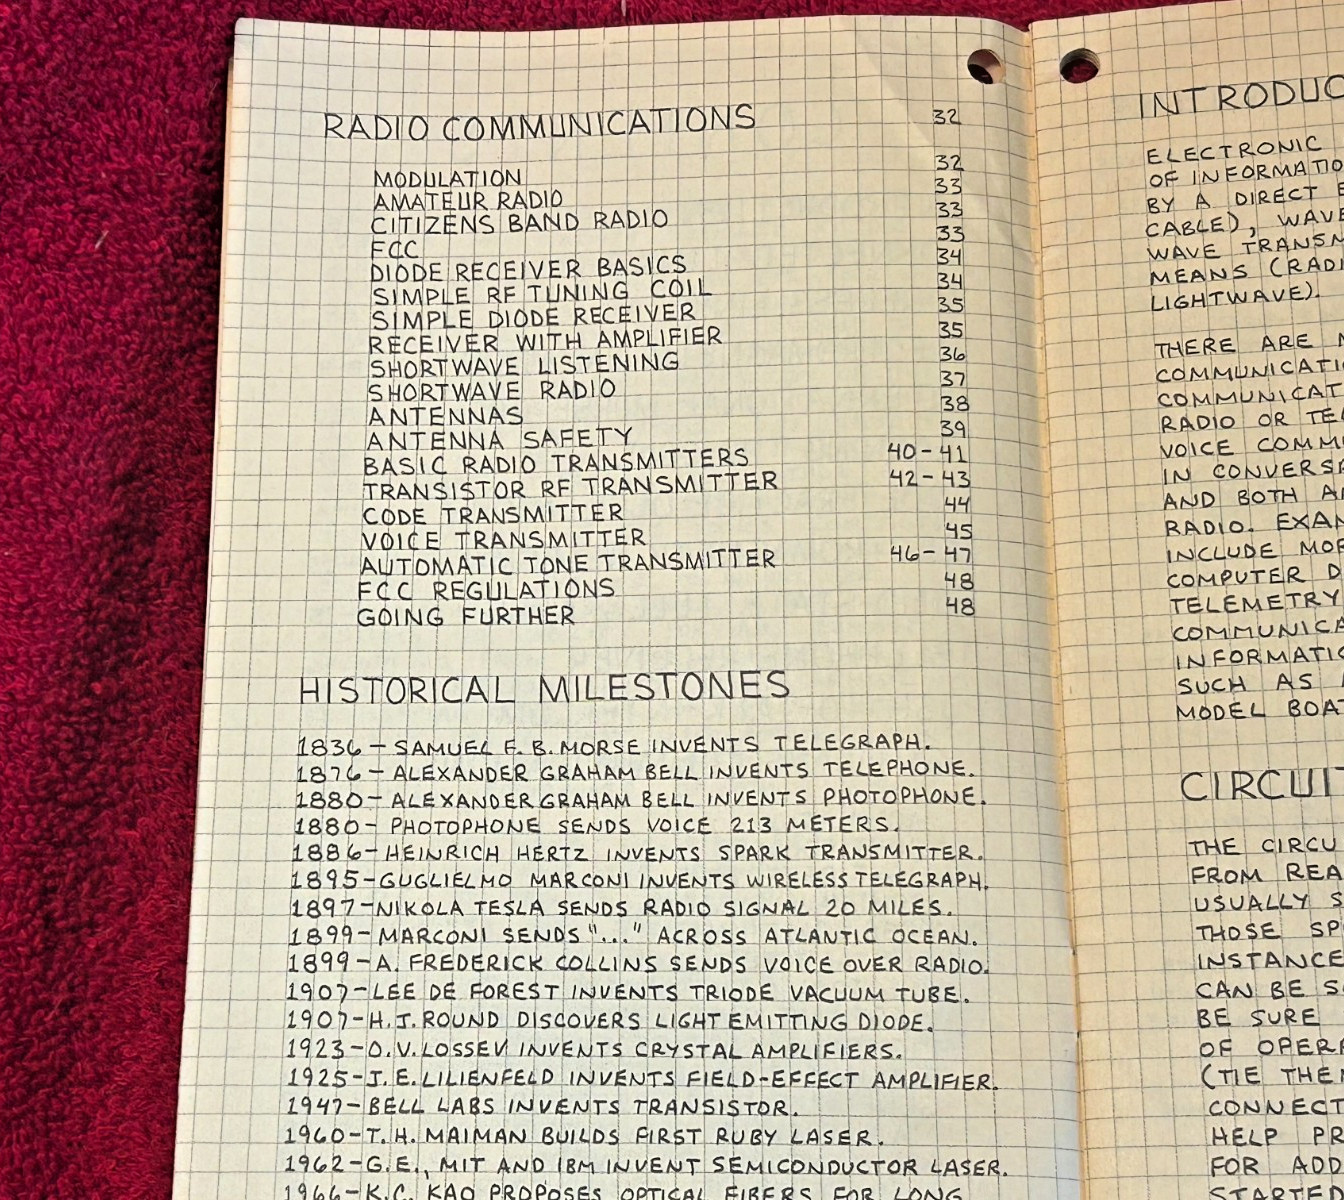 RADIO COMMUNICATIONS 32
MODULATION 32
AMATEUR RADIO 33
CITIZENS BAND RADIO 33
FCC 33
DIODE RECEIVER BASICS 34
SIMPLE RF TUNING COIL 34
SIMPLE DIODE RECEIVER 35
RECEIVER WITH AMPLIFIER 35
SHORTWAVE LISTENING 36
SHORTWAVE RADIO 37
ANTENNAS 38
ANTENNA SAFETY 39
BASIC RADIO TRANSMITTERS 40-41
TRANSISTOR RF TRANSMITTER 42-43
CODE TRANSMITTER 44
VOICE TRANSMITTER 45
AUTOMATIC TONE TRANSMITTER 46-47
FCC REGULATIONS 48
GOING FURTHER 48
HISTORICAL MILESTONES
1836 - SAMUEL F. B. MORSE INVENTS TELEGRAPH.
1876 - ALEXANDER GRAHAM BELL INVENTS TELEPHONE.
1880 - ALEXANDER GRAHAM BELL INVENTS PHOTOPHONE.
1880 - PHOTOPHONE SENDS VOICE 213 METERS.
1886 - HEINRICH HERTZ INVENTS SPARK TRANSMITTER.
1895 - GUGLIELMO MARCONI INVENTS WIRELESS TELEGRAPH.
1897 - NIKOLA TESLA SENDS RADIO SIGNAL 20 MILES.
1899 - MARCONI SENDS "..." ACROSS ATLANTIC OCEAN.
1899 - A. FREDERICK COLLINS SENDS VOICE OVER RADIO.
1907 - LEE DE FOREST INVENTS TRIODE VACUUM TUBE.
1907 - H.J. ROUND DISCOVERS LIGHT EMITTING DIODE.
1923 - O.V. LOSSEV INVENTS CRYSTAL AMPLIFIERS.
1925 - J.E. LILIENFELD INVENTS FIELD-EFFECT AMPLIFIER.
1947 - BELL LABS INVENTS TRANSISTOR.
1960 - T.H. MAIMAN BUILDS FIRST RUBY LASER.
1962 - G.E., MIT AND IBM INVENT SEMICONDUCTOR LASER.
1966 - K.C. KAO PROPOSES OPTICAL FIBERS FOR LONG
INTRODUC
ELECTRONIC
OF INFORMATIO
BY A DIRECT
CABLE), WAVE
WAVE TRANSM
MEANS (RADI
LIGHTWAVE).
THERE ARE
COMMUNICATI
COMMUNICAT
RADIO OR TE
VOICE COMM
IN CONVERS
AND BOTH
RADIO. EXAM
INCLUDE MOR
COMPUTER D
TELEMETRY
COMMUNICA
INFORMATI
SUCH AS
MODEL BOAT
CIRCUIT
THE CIRCU
FROM REA
USUALLY S
THOSE SP
INSTANCE
CAN BE S
BE SURE
OF OPER
(TIE THE
CONNECT
HELP PR
FOR ADD
STARTE